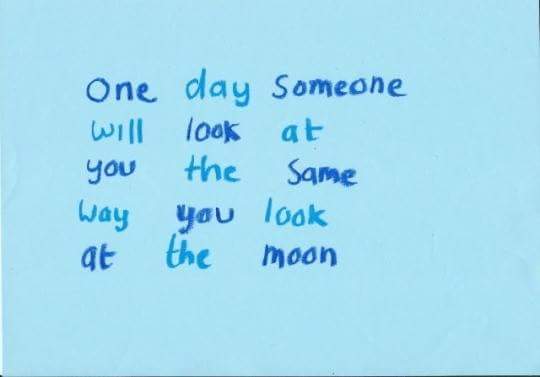 One day Someone
will look at
you the Same
Way you look
at the moon